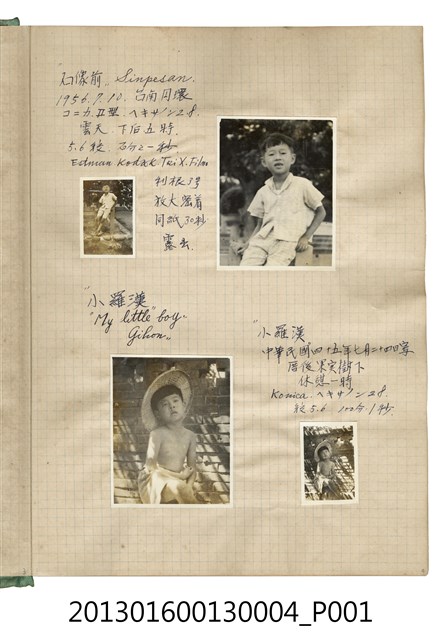 "石像前" Sinpesan.
1956.7.10. 台南円環
コニカ Ⅱ型 ヘキサノン 2.8.
雲天、下后五時.
5.6絞 百分之一秒
Estman Kodak Tri X. Film
利根3号
放大密着
同紙 30秒
露出
"小羅漢"
"My little" boy.
Gihon.
"小羅漢
中華民國四十五年七月二十
厝後果実樹下
休憩一時
Konica. ヘキサノン 2.8.
絞 5.6 100分1秒
201301600130004_P001